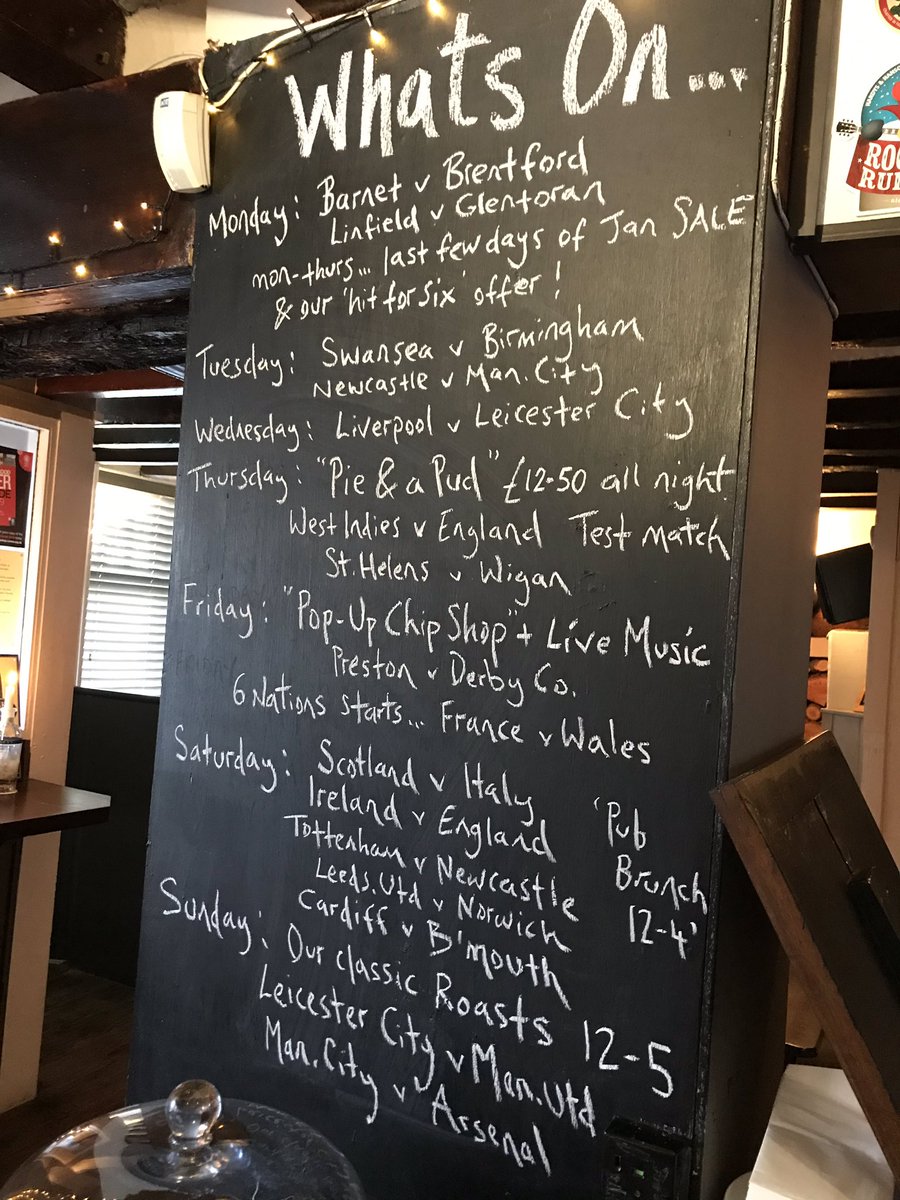 Whats On...
Monday: Barnet v Brentford
Linfield v Glentoran
mon-thurs... last few days of Jan SALE
& our 'hit for six' offer!
Tuesday: Swansea v Birmingham
Newcastle v Man. City
Wednesday: Liverpool v Leicester City
Thursday: "Pie & a Pud" £12-50 all night
West Indies v England Test match
St. Helens v Wigan
Friday: "Pop-Up Chip Shop" + Live Music
Preston v Derby Co.
6 Nations starts... France v Wales
Saturday: Scotland v Italy
Ireland v England
Tottenham v Newcastle
Leeds. Utd v Norwich
Cardiff v B'mouth
'Pub
Brunch
12-4'
Sunday: Our classic Roasts 12-5
Leicester City v Man. Utd
Man. City v Arsenal